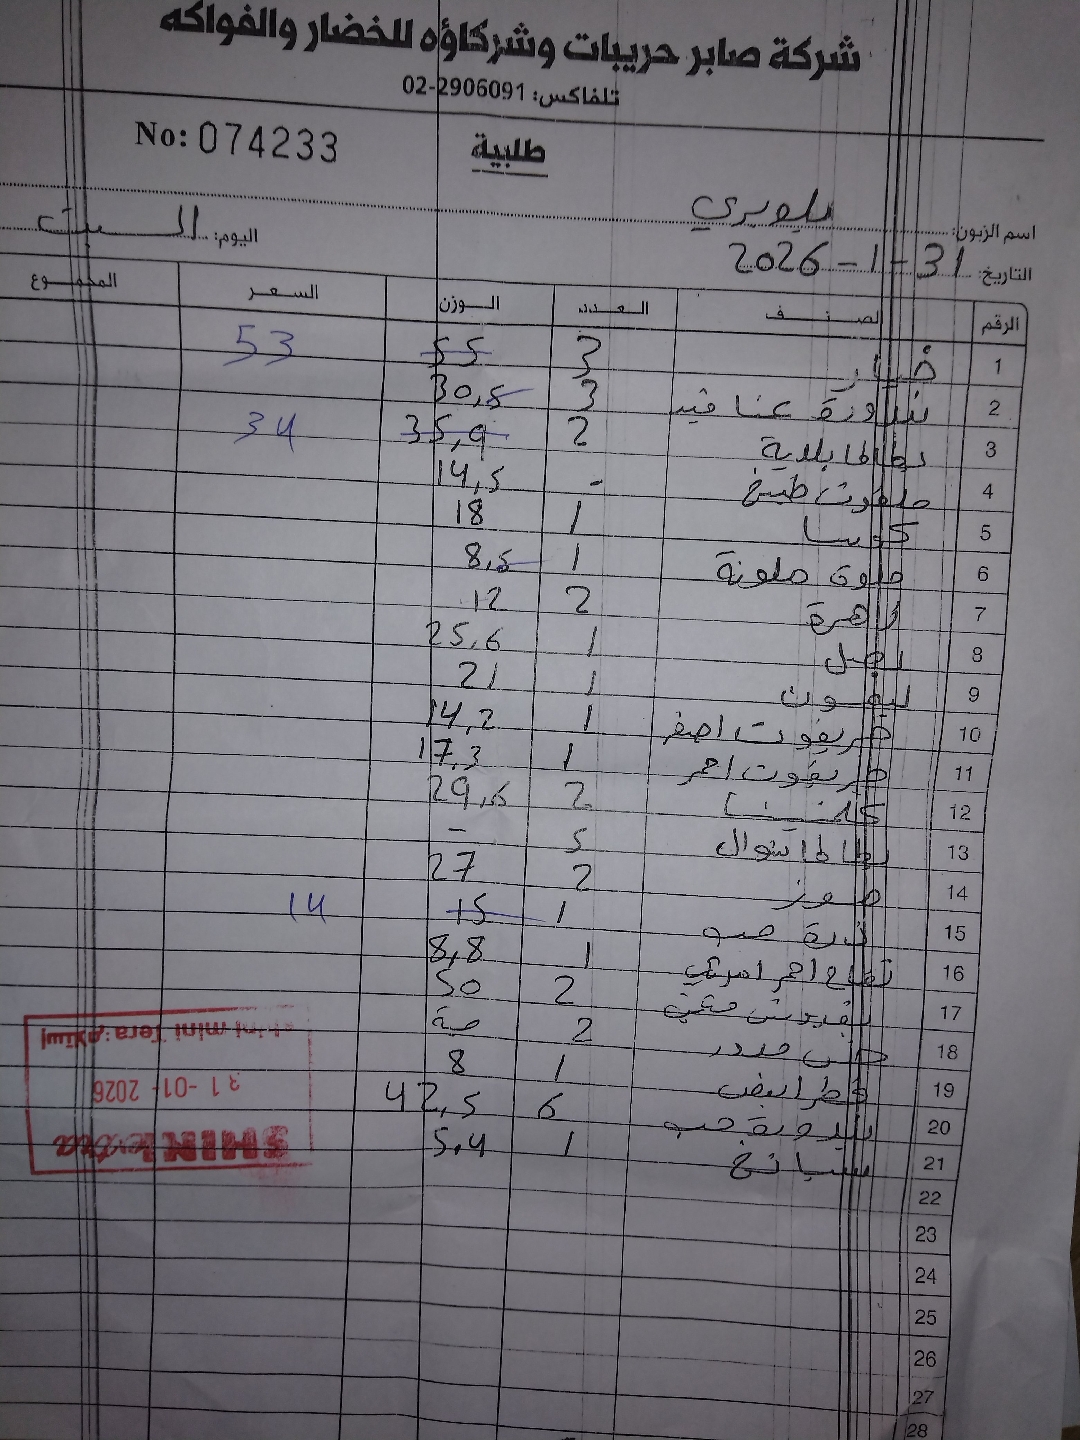 شركة صابر حريبات وشركاؤه للخضار والفواكه
تلفاكس: 02-2906091
No: 074233
طلبية
اسم الزبون:
اليوم: السبت
التاريخ: 31-1-2026
الرقم الصنف العدد الوزن السعر المجموع
1 خيار 3 55 53
2 بندورة عناقيد 3 30,5
3 بطاطا بلدية 2 35,9 34
4 ملفوف طبيخ - 14,5
5 كوسا 1 18
6 حلوة ملونة 1 8,5
7 زهرة 2 12
8 بصل 1 25,6
9 ليمون 1 21
10 جريفوت اصفر 1 14,2
11 جريفوت احمر 1 17,3
12 كلمنتينا 2 29,5
13 بطاطا 5 -
14 موز 2 27
15 ذرة حب 1 15 14
16 تفاح احمر امريكي 1 8,8
17 2 50
18 خس مدور 2
19 فطر ابيض 1 8
20 حب 6 42,5
21 سبانخ 1 5,4
22
23
24
25
26
27
28
shini mini Tera إستلام:
31-01-2026
SHINI extra